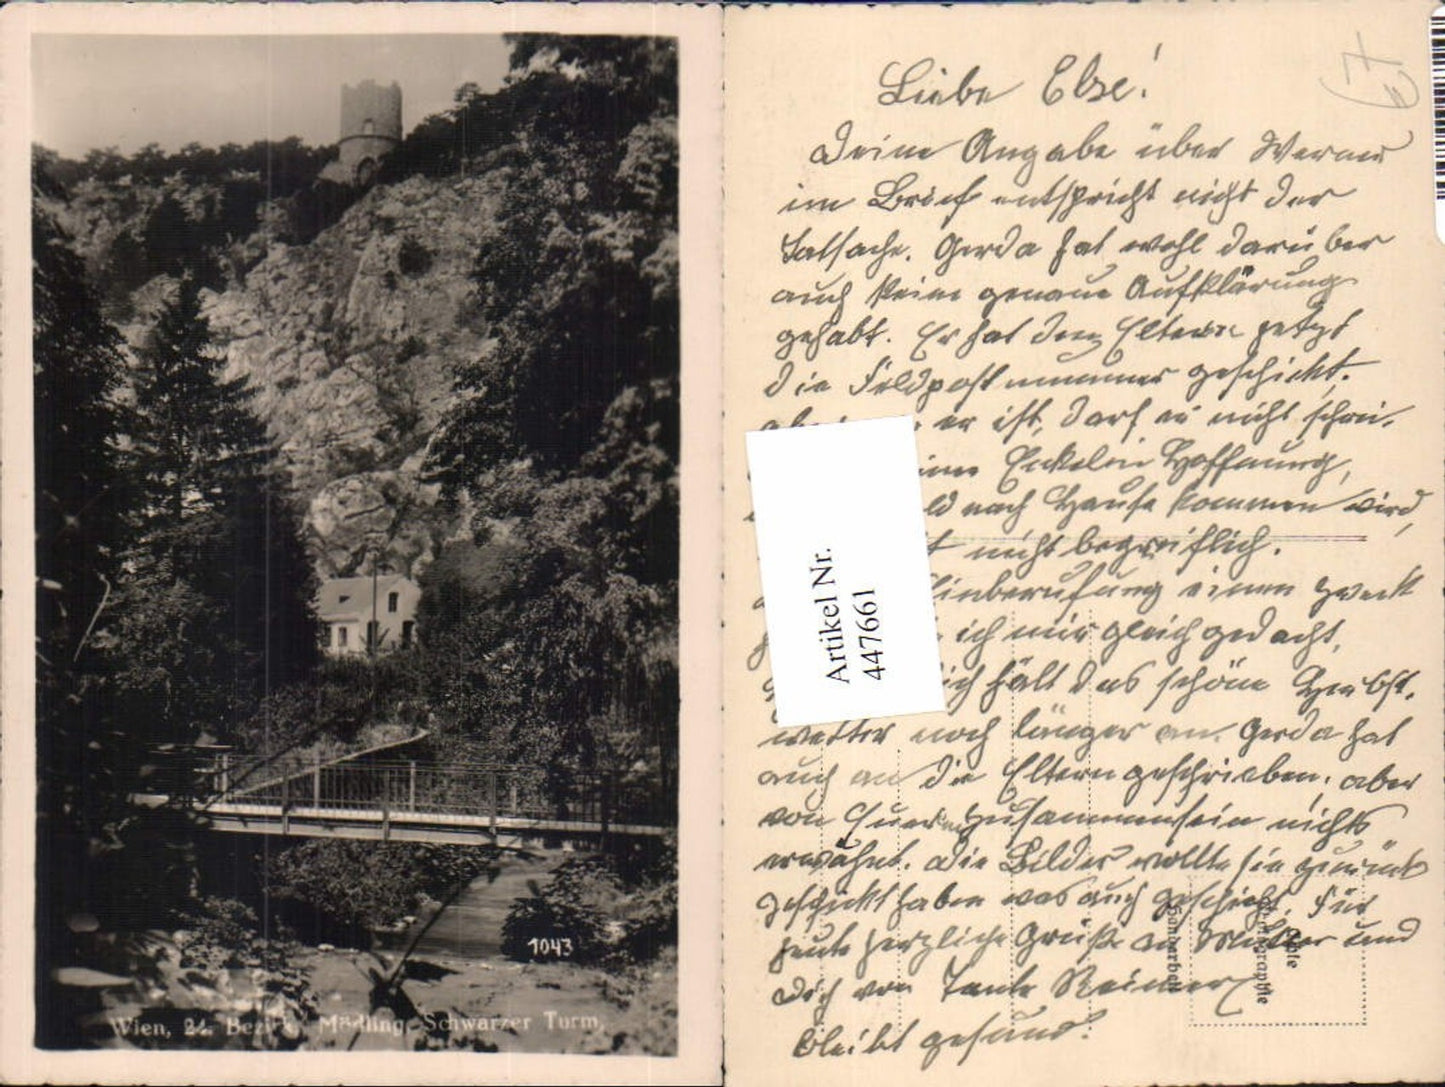 1043
Wien, 24. Bezirk, Mödling, Schwarzer Turm.
Liebe Else!
Deine Angabe über Werner
im Brief entspricht nicht der
Tatsache. Gerda hat wohl darüber
auch keine genaue Aufklärung
gehabt. Er hat den Eltern jetzt
die Feldpostnummer geschickt,
er ist, darf er nicht schrei-
Hoffnung,
nach Hause kommen wird,
nicht begreiflich.
Einberufung einen Zweck
ich mir gleich gedacht,
hält das schöne Herbst-
wetter noch länger an. Gerda hat
auch an die Eltern geschrieben, aber
von Eurem Zusammensein nichts
erwähnt. Die Bilder wollte sie zurück
geschickt haben was auch geschieht. Für
heute herzliche Grüße an Mutter und
Dich von Tante
Bleibt gesund!
Artikel Nr.
447661